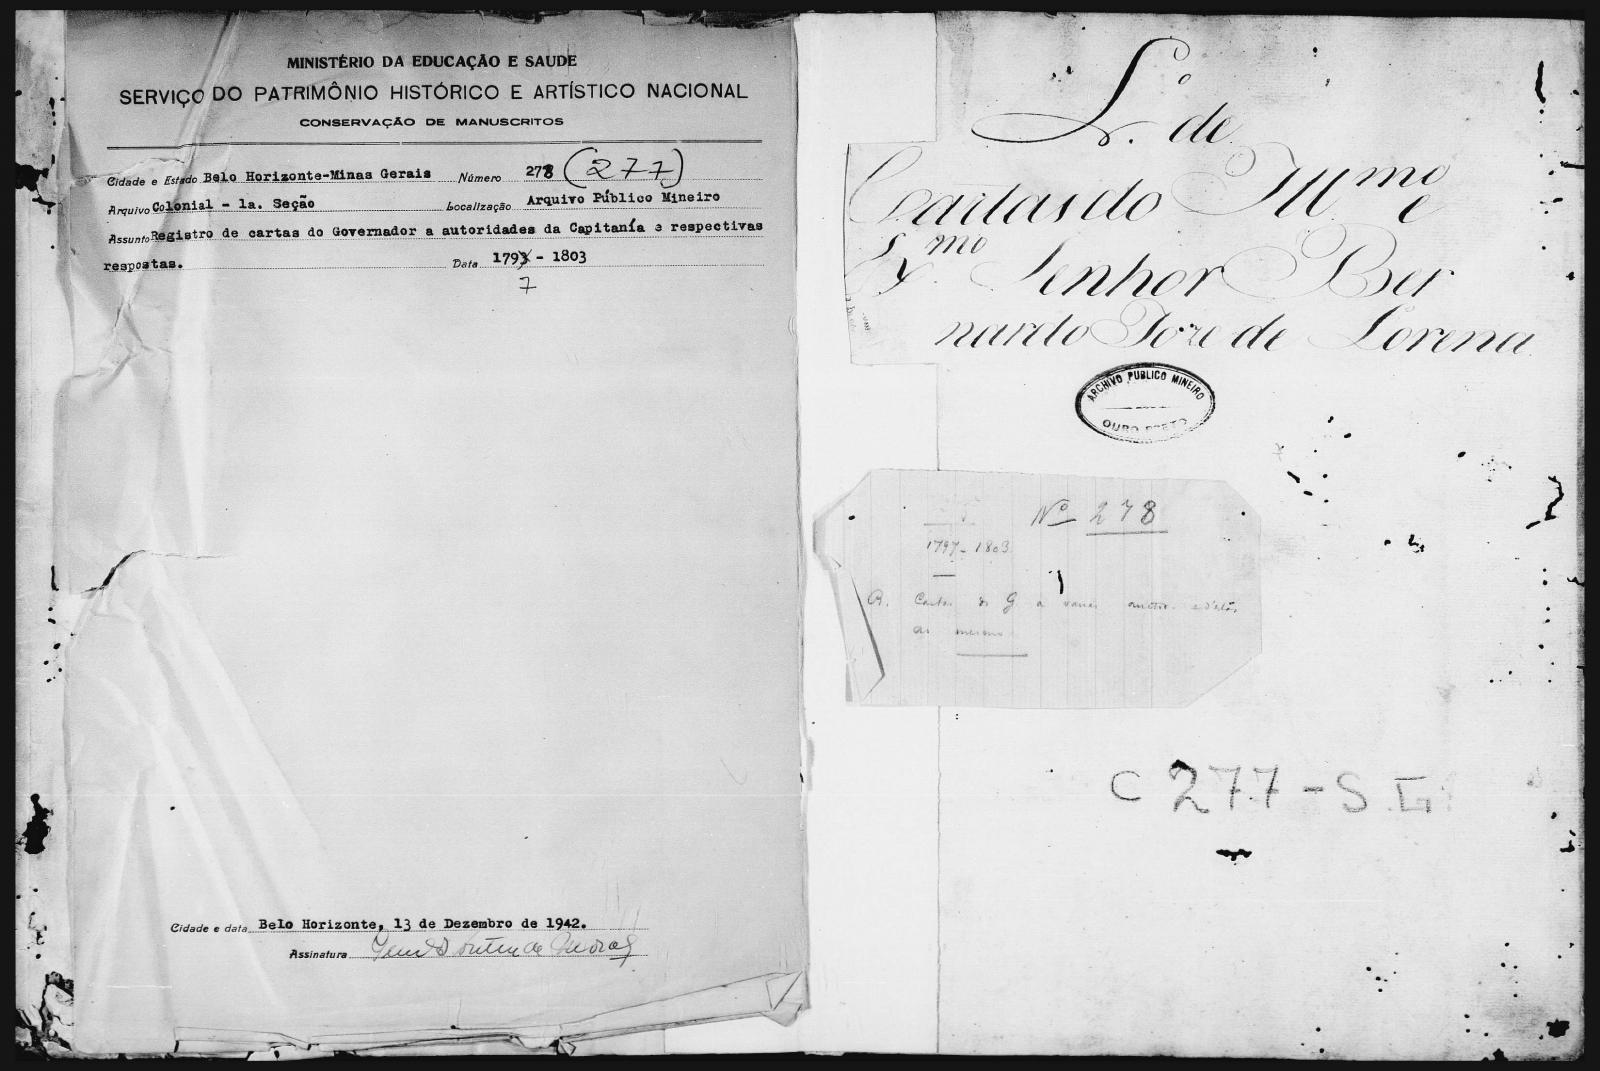 MINISTÉRIO DA EDUCAÇÃO E SAUDE
SERVIÇO DO PATRIMÔNIO HISTÓRICO E ARTÍSTICO NACIONAL
CONSERVAÇÃO DE MANUSCRITOS
Cidade e Estado Belo Horizonte-Minas Gerais Número 278 (277)
Arquivo Colonial - 1a. Seção Localização Arquivo Público Mineiro
Assunto Registro de cartas do Governador a autoridades da Capitanía e respectivas
respostas. Data 1793 - 1803
7
Cidade e data Belo Horizonte, 13 de Dezembro de 1942.
Assinatura
L.º de
Cartas do Illmo e
Exmo Senhor Ber
nardo Joze de Lorena
ARCHIVO PUBLICO MINEIRO
OURO PRETO
Nº 278
1797-1803
R. Cartas do G a varias
as mesmas
C 277 - S.G.